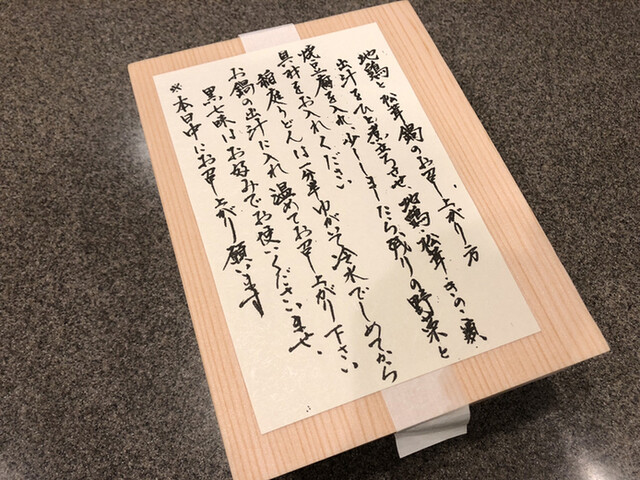 地鶏と松茸鍋のお召し上がり方
出汁をひと煮立ちさせ、地鶏・松茸・きのこ類
焼豆腐を入れ、少ししましたら残りの野菜と
具材をお入れください
稲庭うどんは一分半ゆがいて冷水でしめてから
お鍋の出汁に入れ温めてお召し上がり下さい
黒七味はお好みでお使いくださいませ。
※本日中にお召し上がり願います